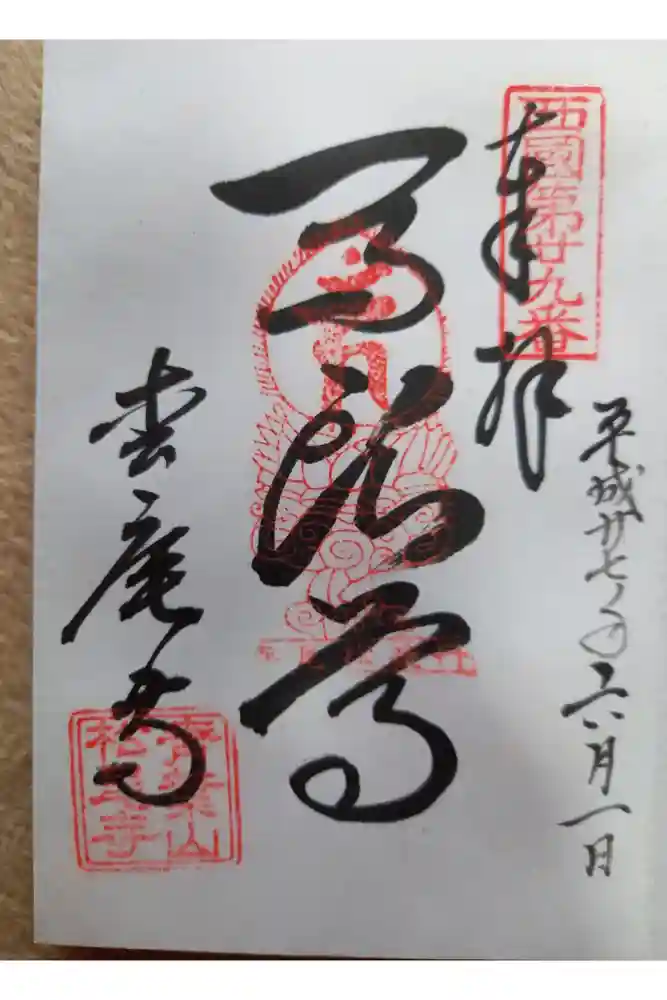 西國第廿九番
奉拝
平成廿七年六月一日
馬頭尊
枩尾寺
青葉山
松尾寺